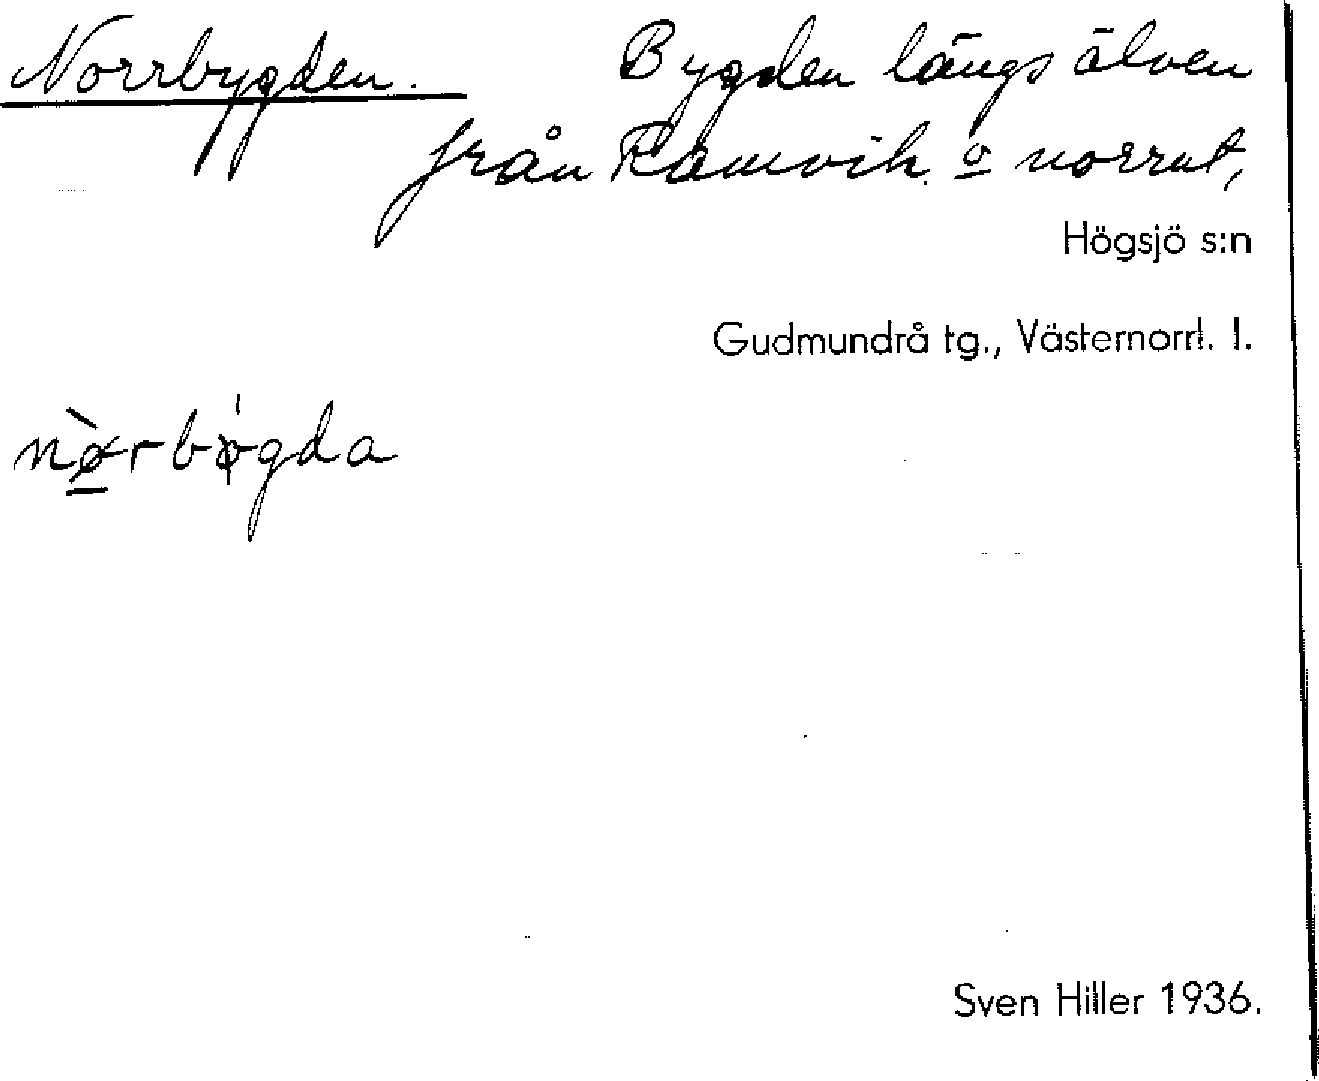 Norrbygden. Bygden längs älven
från Ramvik o norrut,
Högsjö s:n
Gudmundrå tg., Västernorrl. l.
nø̀rbø̍gda
Sven Hiller 1936.